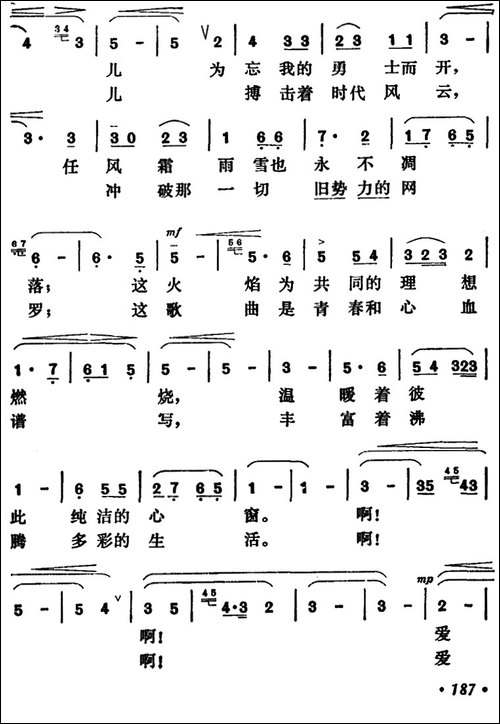 4 34 3 | 5 - | 5 V 2 | 4 3 3 | 2 3 1 1 | 3 - |
儿 为 忘 我的 勇 士而 开,
儿 搏 击着 时代 风 云,
3· 3 | 3 0 2 3 | 1 6 6 | 7· 2 | 1 7 6 5 |
任 风 霜 雨 雪也 永 不 凋
冲 破那 一 切 旧势 力的 网
mf
67 6 - | 6· 5 | 5 - | 56 5· 6 | 5 5 4 | 3 2 3 2 |
落; 这 火 焰 为 共 同的 理 想
罗; 这 歌 曲 是 青 春和 心 血
1· 7 | 6 1 5 | 5 - | 5 - | 3 - | 5· 6 | 5 4 323 |
燃 烧, 温 暖 着 彼
谱 写, 丰 富 着 沸
1 - | 6 5 5 | 2 7 6 5 | 1 - | 1 - | 3 - | 35 45 43 |
此 纯 洁的 心 窗。 啊!
腾 多 彩的 生 活。 啊!
mp
5 - | 5 4 V | 3 5 | 45 4·3 2 | 3 - | 3 - | 2 - |
啊! 爱
啊! 爱
· 187 ·